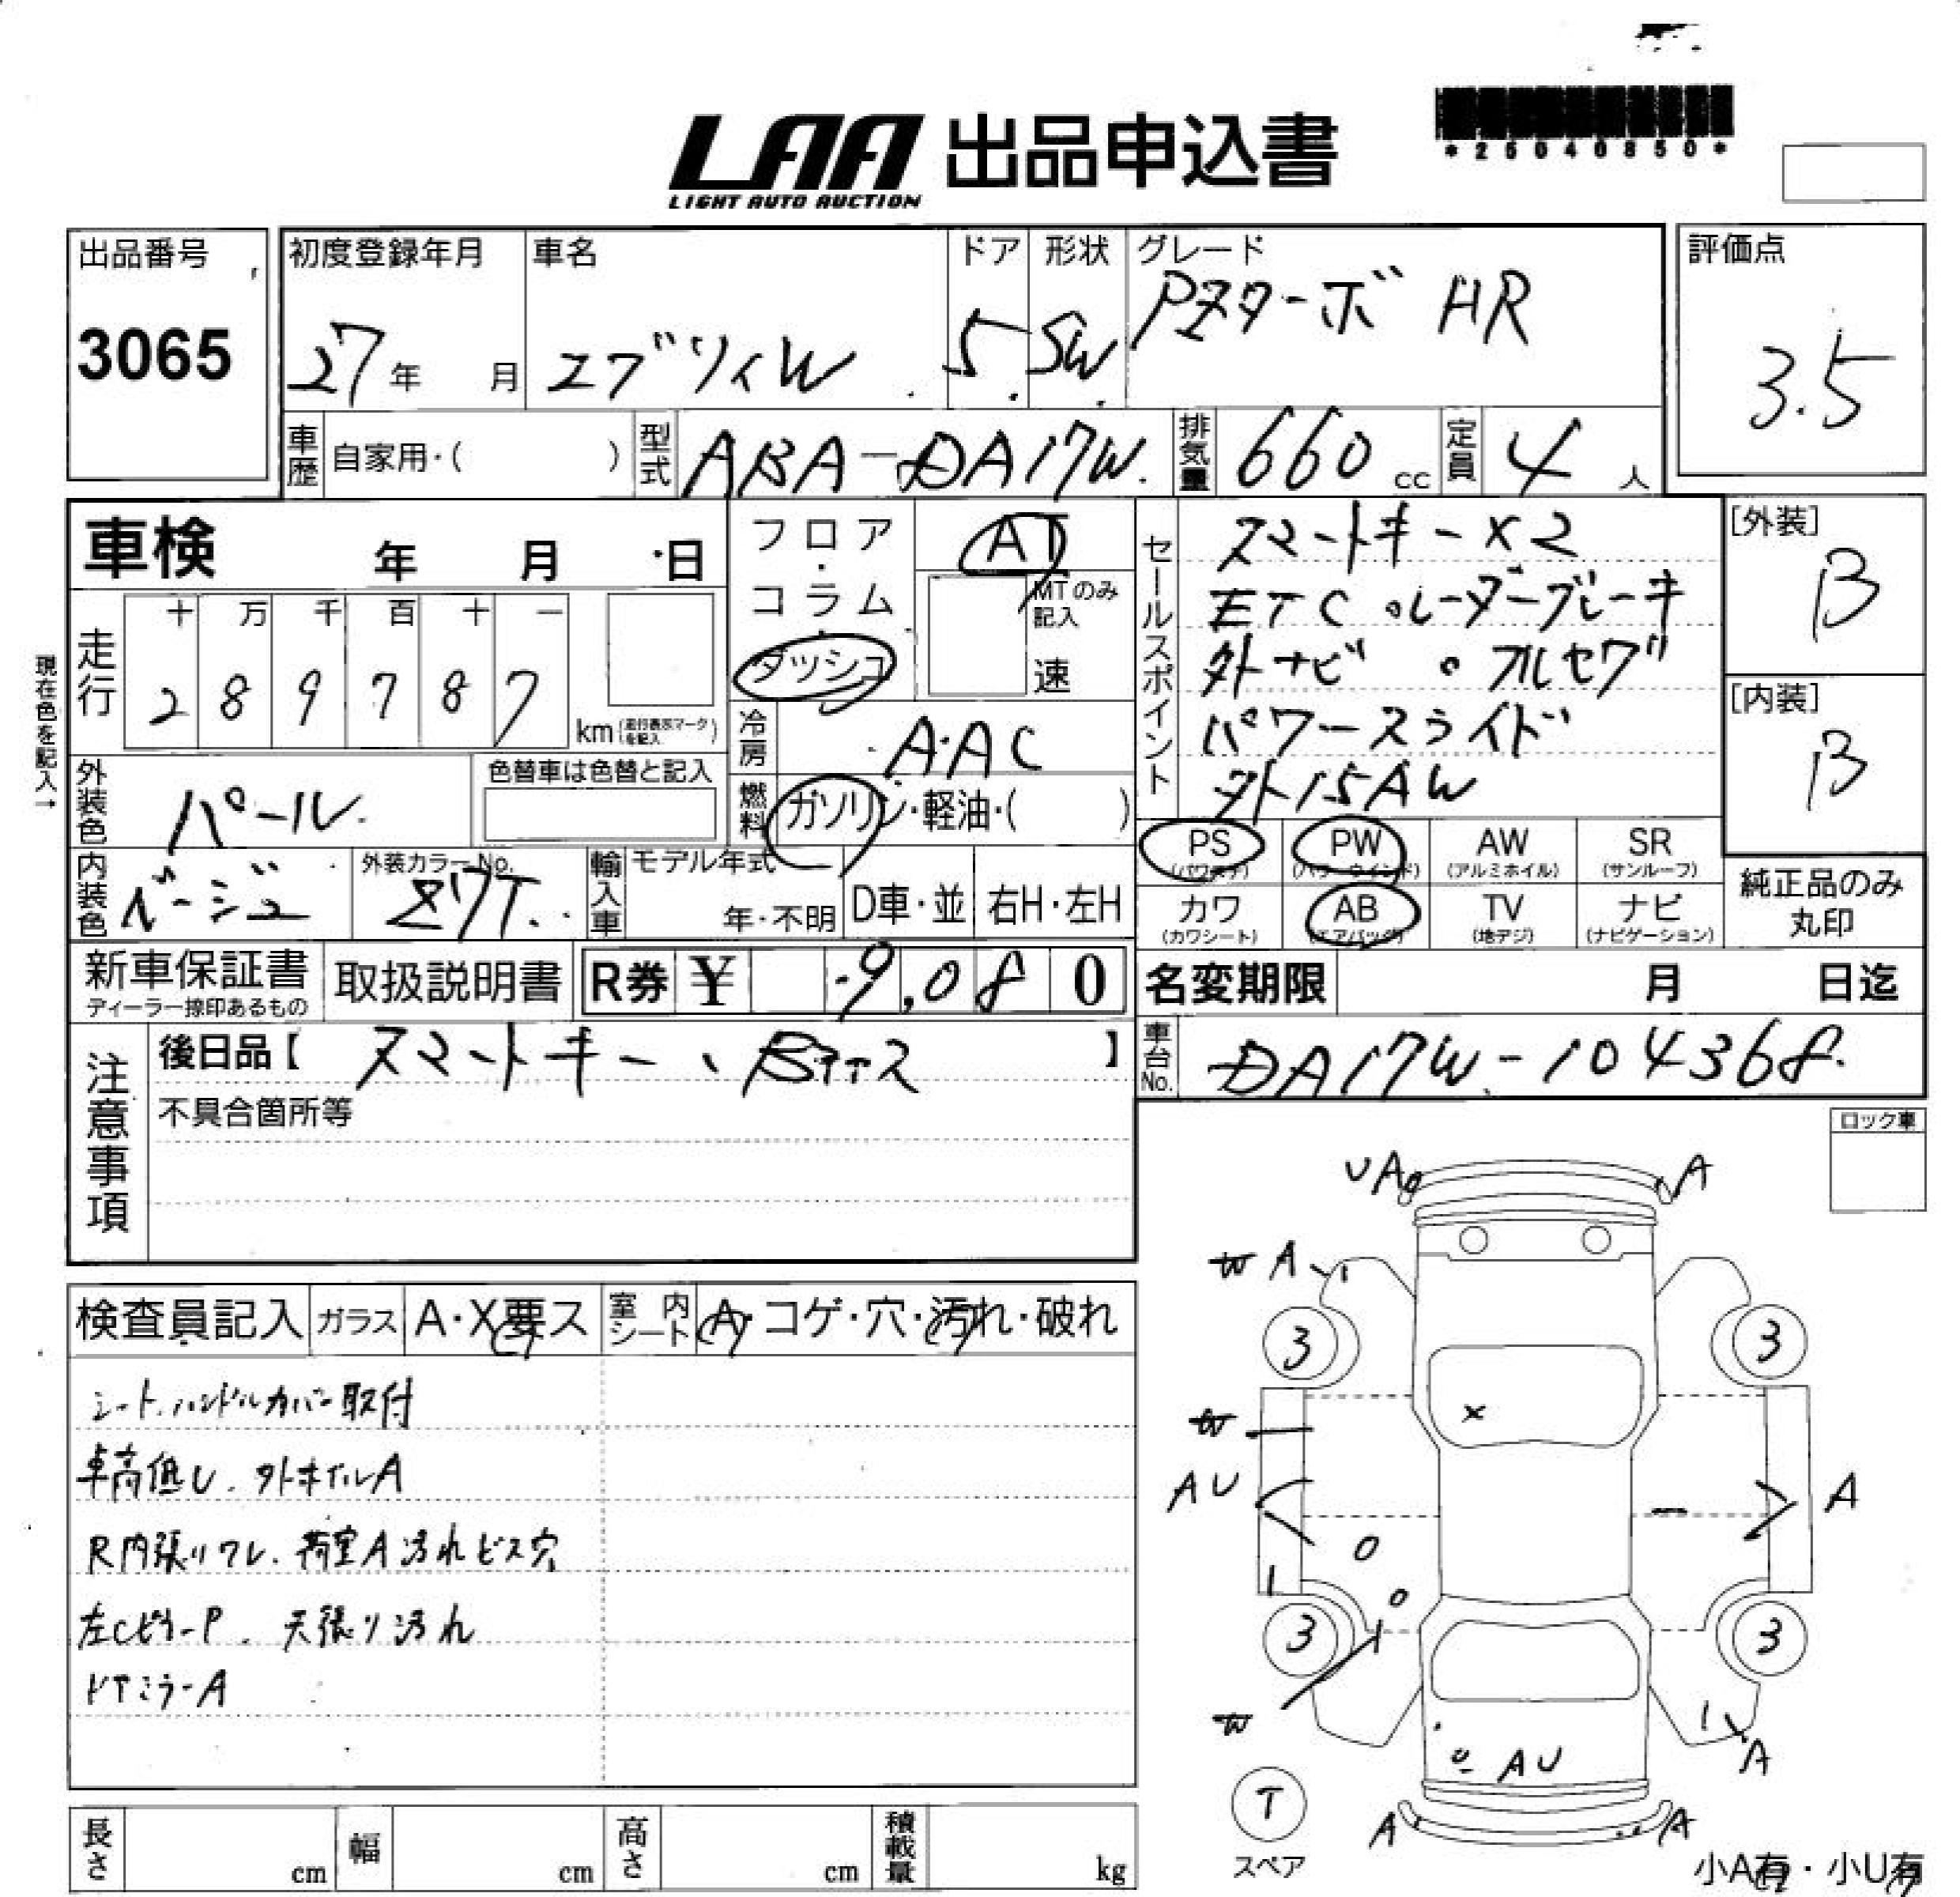 *26040850*
LAA 出品申込書
LIGHT AUTO AUCTION
出品番号 3065
初度登録年月 27年 月
車名 エブリイW
ドア 5
形状 SW
グレード PZターボ HR
評価点 3.5
車歴 自家用・( )
型式 ABA-DA17W
排気量 660 cc
定員 4 人
車検 年 月 日
フロア・コラム・ダッシュ
AT
MTのみ記入
速
セールスポイント
スマートキー×2
ETC 。レーダーブレーキ
外ナビ 。フルセグ
パワースライド
外15AW
[外装] B
[内装] B
現在色を記入→
走行 十 万 千 百 十 一
2 8 9 7 8 7
km (走行表示マークを記入)
冷房 AAC
外装色 パール
色替車は色替と記入
燃料 ガソリン・軽油・( )
内装色 ベージュ
外装カラーNo. Z7T
輸入車 モデル年式 年・不明
D車・並 右H・左H
PS (パワステ) PW (パワーウインド) AW (アルミホイル) SR (サンルーフ)
カワ (カワシート) AB (エアバッグ) TV (地デジ) ナビ (ナビゲーション)
純正品のみ丸印
新車保証書 ディーラー捺印あるもの
取扱説明書
R券 ¥ 9,080
名変期限 月 日迄
注意事項
後日品【 スマートキー、 】
車台No. DA17W-104368
不具合箇所等
ロック車
UA A
W A
3 3
W
×
AU A
3 3
W
A
AU
T
スペア
A A
小A有・小U有
検査員記入 ガラス A・X要ス 室内シート A・コゲ・穴・汚れ・破れ
シート、ハンドルカバー取付
車高低し、外ホイルA
R内張りワレ、荷室A汚れビス穴
左CピラーP、天張り汚れ
ドアミラーA
長さ cm 幅 cm 高さ cm 積載量 kg